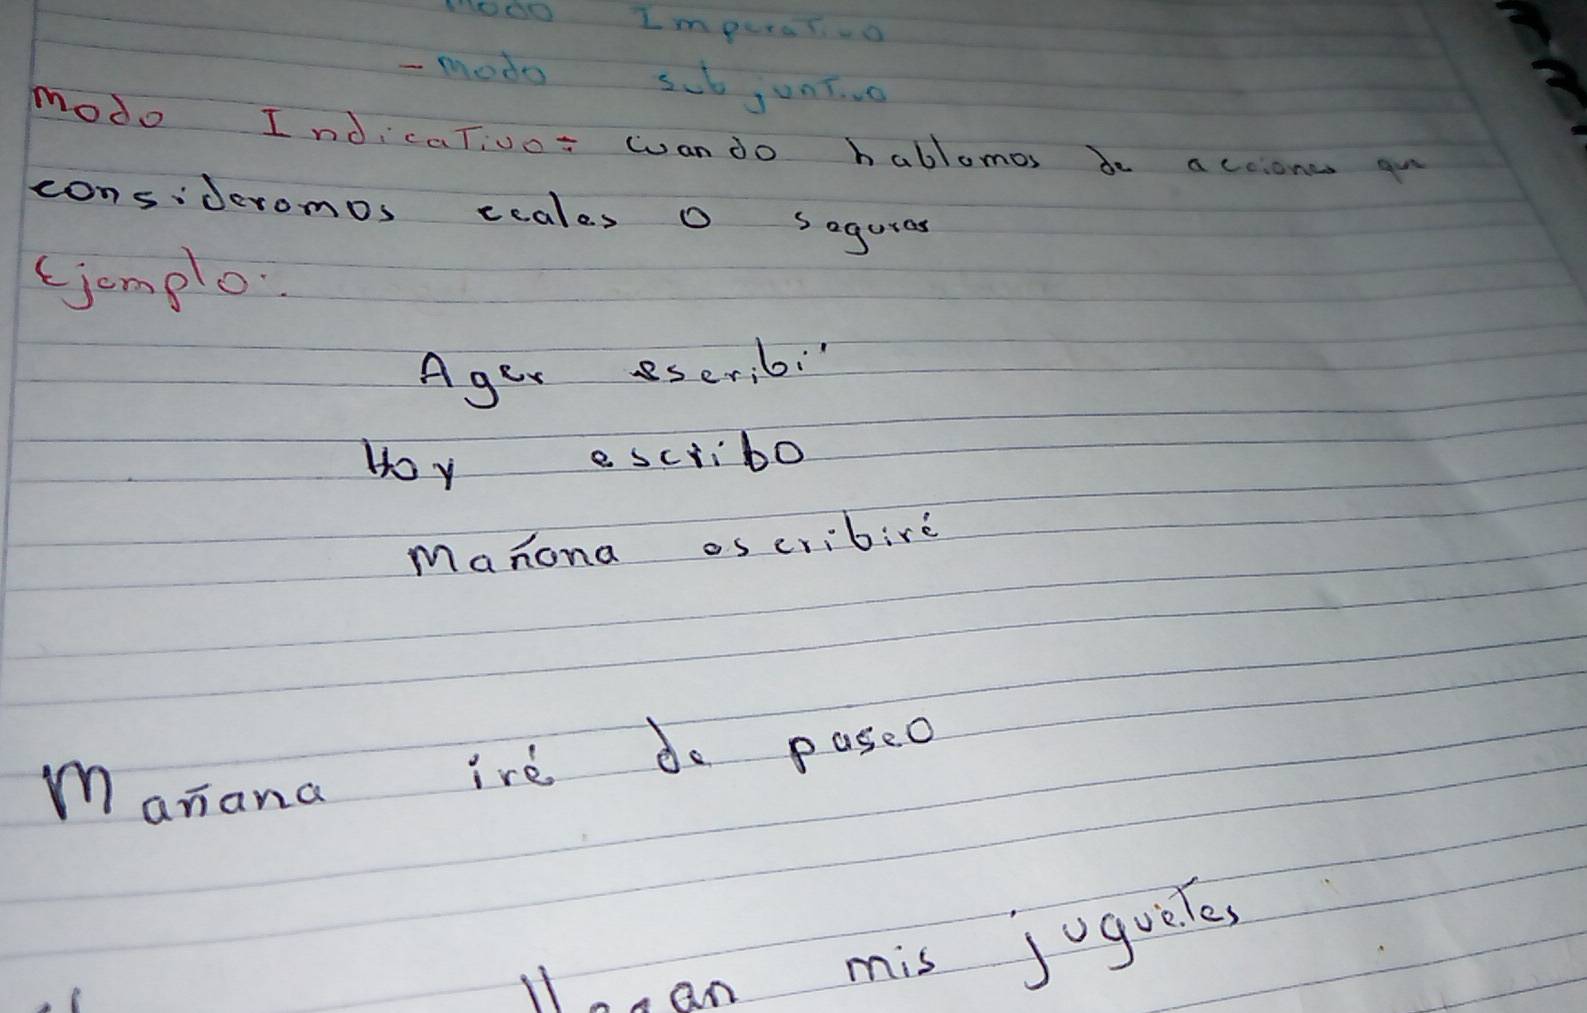 Modo Imperativo
- modo subjuntivo
Modo Indicativo: cuando hablamos de acciones que
consideramos reales o seguras
Ejemplo:
Ayer escribí
Hoy escribo
Mañana escribiré
Mañana iré de paseo
llegan mis juguetes